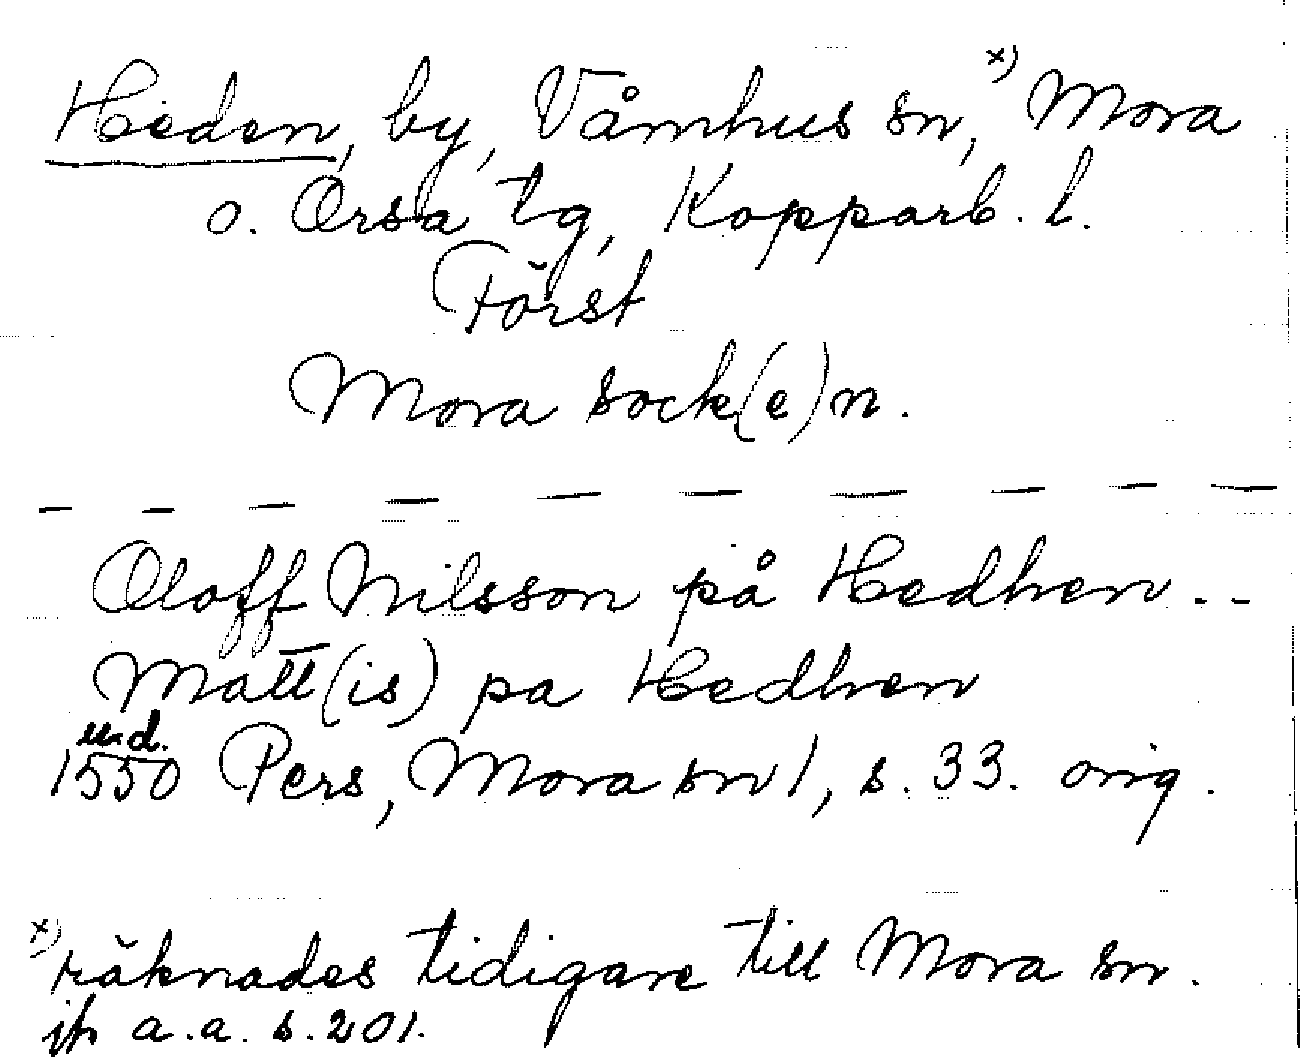 Heden, by, Våmhus sn, x) Mora
o. Orsa tg, Kopparb. l.
Först
Mora sock(e)n.
Oloff Nilsson på Hedhen..
Matt(is) pa Hedhen
u.d.
1550 Pers, Mora sn 1, s. 33. orig.
x) räknades tidigare till Mora sn.
jfr a.a. s. 201.